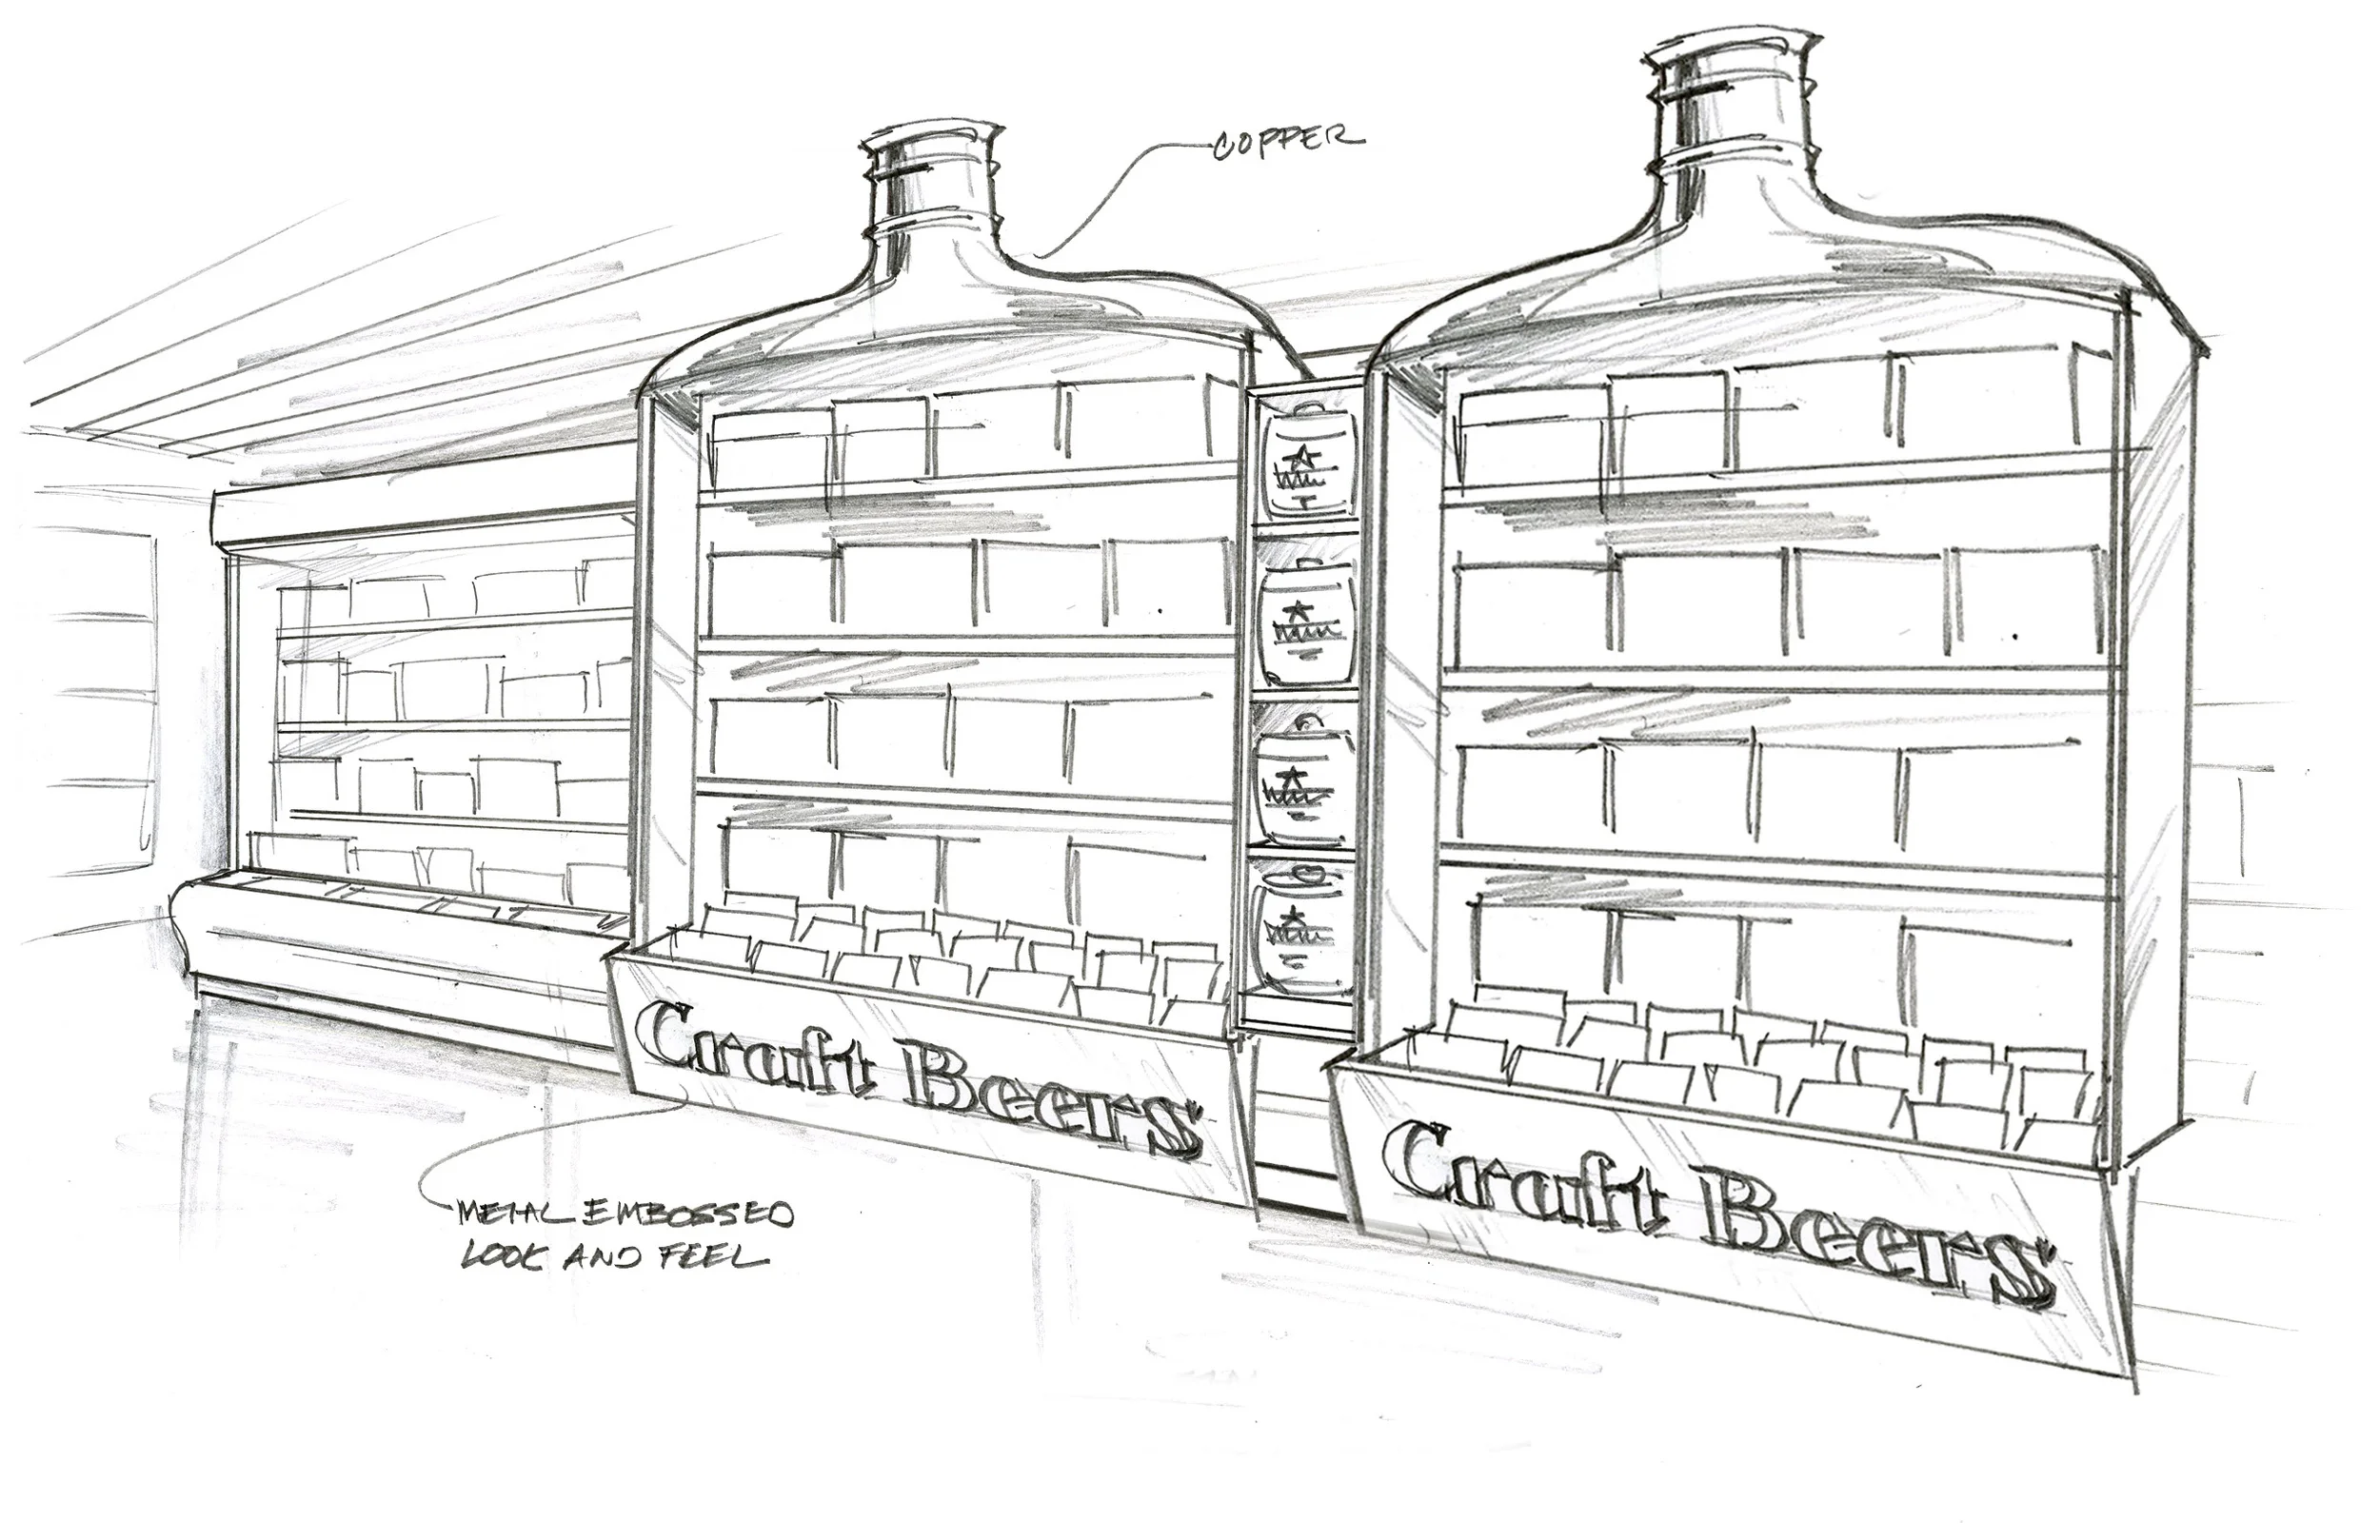 COPPER
Craft Beers
Craft Beers
METAL EMBOSSED
LOOK AND FEEL